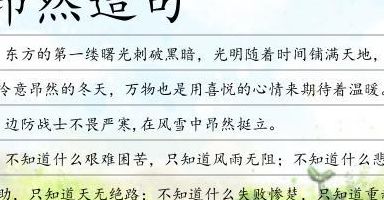 昂然造句
东方的第一缕曙光刺破黑暗，光明随着时间铺满天地，
冷意昂然的冬天，万物也是用喜悦的心情来期待着温暖。
边防战士不畏严寒,在风雪中昂然挺立。
不知道什么艰难困苦，只知道风雨无阻；不知道什么悲
助，只知道天无绝路；不知道什么失败惨楚，只知道重